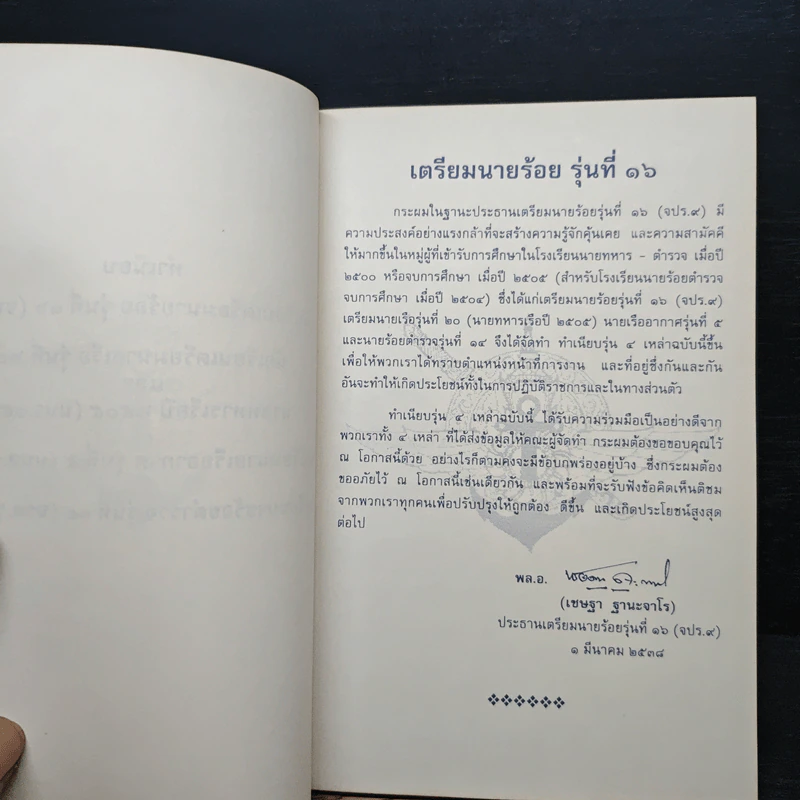 เตรียมนายร้อย รุ่นที่ ๑๖
กระผมในฐานะประธานเตรียมนายร้อยรุ่นที่ ๑๖ (จปร.๙) มี
ความประสงค์อย่างแรงกล้าที่จะสร้างความรู้จักคุ้นเคย และความสามัคคี
ให้มากขึ้นในหมู่ผู้ที่เข้ารับการศึกษาในโรงเรียนนายทหาร - ตำรวจ เมื่อปี
๒๕๐๐ หรือจบการศึกษา เมื่อปี ๒๕๐๕ (สำหรับโรงเรียนนายร้อยตำรวจ
จบการศึกษา เมื่อปี ๒๕๐๔) ซึ่งได้แก่เตรียมนายร้อยรุ่นที่ ๑๖ (จปร.๙)
เตรียมนายเรือรุ่นที่ ๒๐ (นายทหารเรือปี ๒๕๐๕) นายเรืออากาศรุ่นที่ ๕
และนายร้อยตำรวจรุ่นที่ ๑๔ จึงได้จัดทำ ทำเนียบรุ่น ๔ เหล่าฉบับนี้ขึ้น
เพื่อให้พวกเราได้ทราบตำแหน่งหน้าที่การงาน และที่อยู่ซึ่งกันและกัน
อันจะทำให้เกิดประโยชน์ทั้งในการปฏิบัติราชการและในทางส่วนตัว
ทำเนียบรุ่น ๔ เหล่าฉบับนี้ ได้รับความร่วมมือเป็นอย่างดีจาก
พวกเราทั้ง ๔ เหล่า ที่ได้ส่งข้อมูลให้คณะผู้จัดทำ กระผมต้องขอขอบคุณไว้
ณ โอกาสนี้ด้วย อย่างไรก็ตามคงจะมีข้อบกพร่องอยู่บ้าง ซึ่งกระผมต้อง
ขออภัยไว้ ณ โอกาสนี้เช่นเดียวกัน และพร้อมที่จะรับฟังข้อคิดเห็นติชม
จากพวกเราทุกคนเพื่อปรับปรุงให้ถูกต้อง ดีขึ้น และเกิดประโยชน์สูงสุด
ต่อไป
พล.อ.
(เชษฐา ฐานะจาโร)
ประธานเตรียมนายร้อยรุ่นที่ ๑๖ (จปร.๙)
๑ มีนาคม ๒๕๓๘